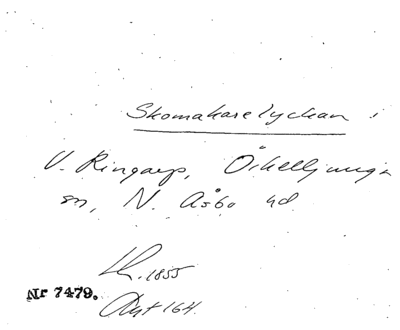 Skomakarelyckan i
V. Ringarp, Örkelljunga
sn, N. Åsbo hd
1855
Nr 7479. Akt 164.